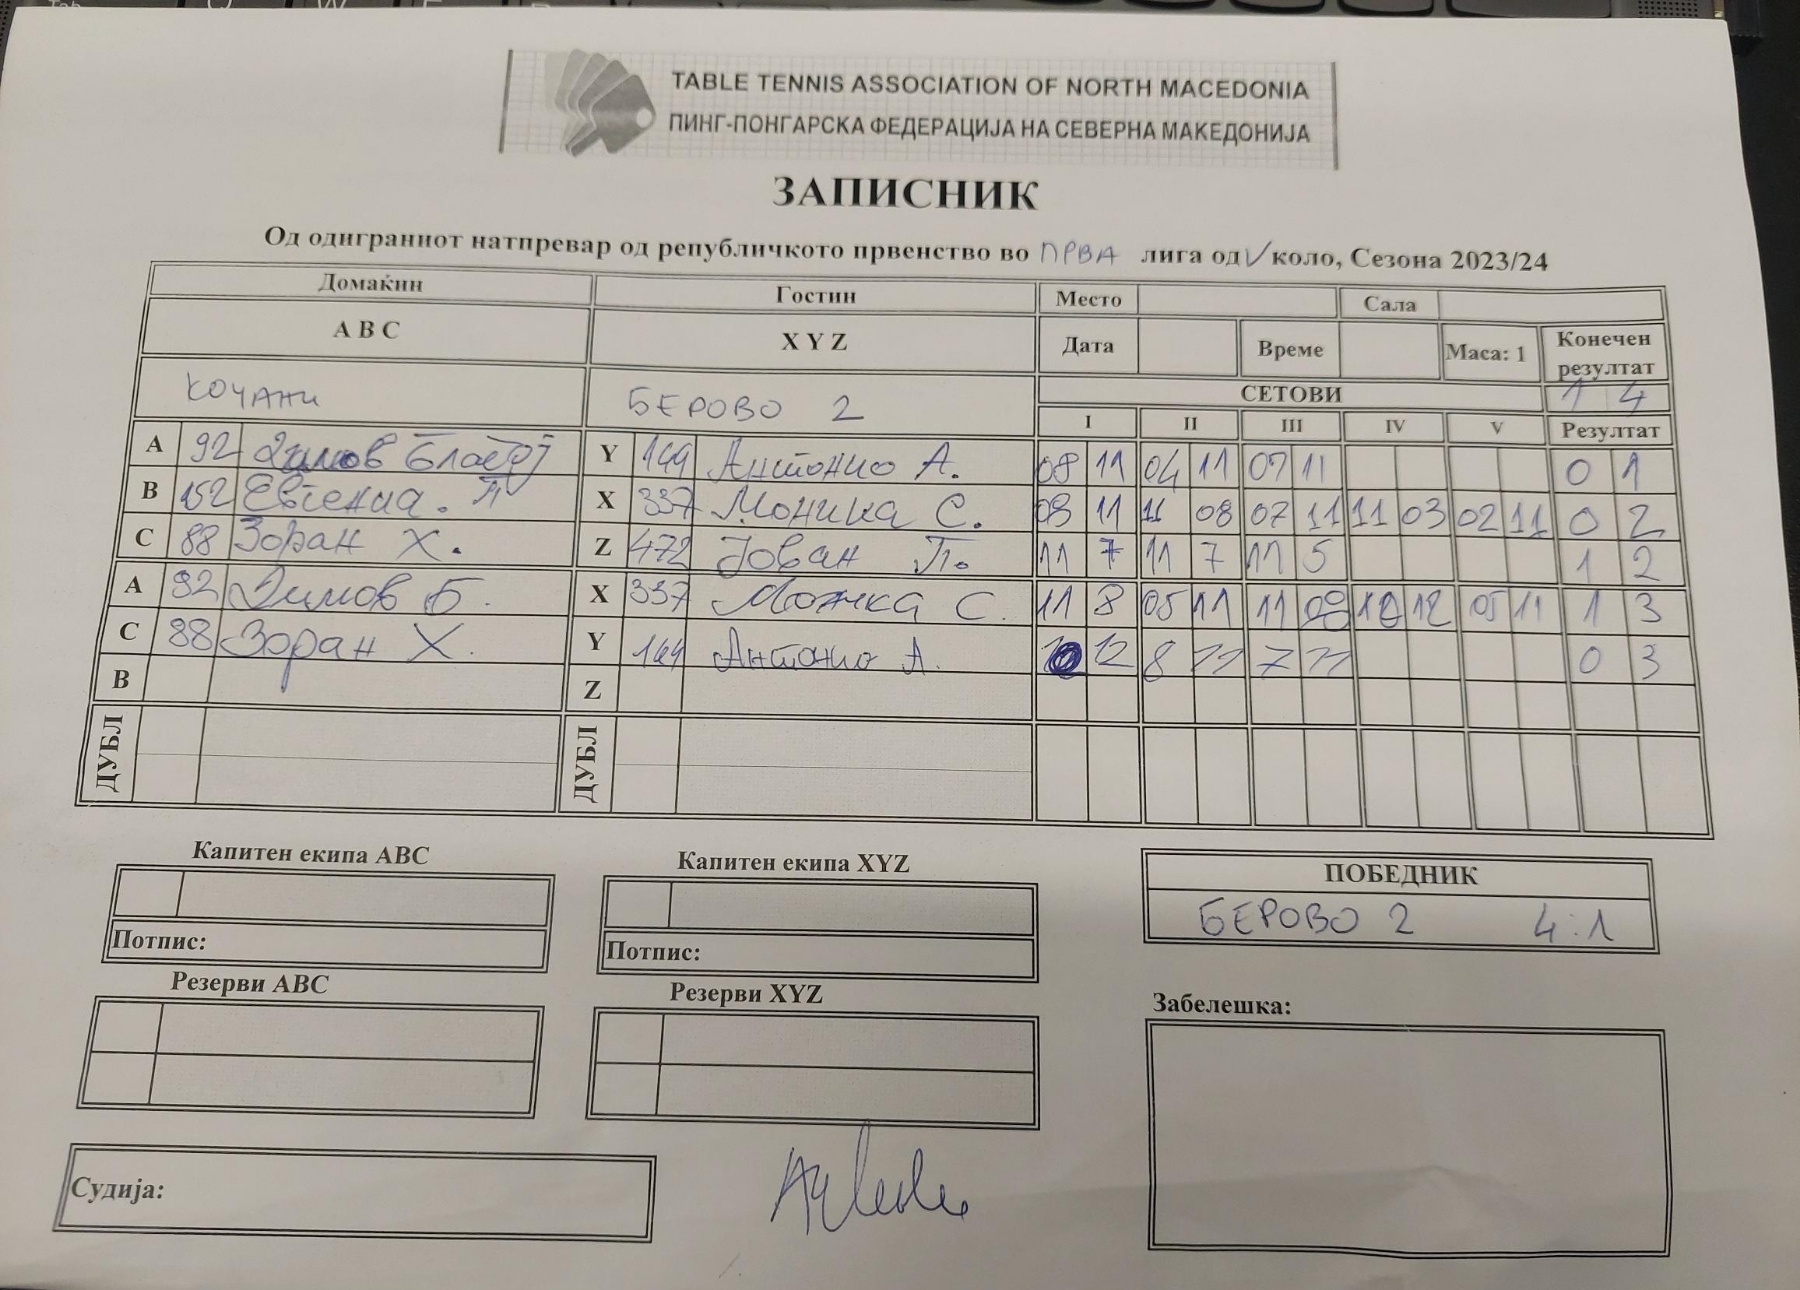 TABLE TENNIS ASSOCIATION OF NORTH MACEDONIA
ПИНГ-ПОНГАРСКА ФЕДЕРАЦИЈА НА СЕВЕРНА МАКЕДОНИЈА
ЗАПИСНИК
Од одиграниот натпревар од републичкото првенство во ПРВА лига од V коло, Сезона 2023/24
Домаќин Гостин Место Сала
A B C X Y Z Дата Време Маса: 1 Конечен резултат
КОЧАНИ БЕРОВО 2 СЕТОВИ 1 4
I II III IV V Резултат
A 92 Димов Y 144 Антонио А. 08 11 04 11 07 11 0 1
B 152 Евгенија. П X 337 Моника С. 09 11 11 08 07 11 11 03 02 11 0 2
C 88 Зоран Х. Z 472 Јован П. 11 7 11 7 11 5 1 2
A 92 Димов Б. X 337 Моника С. 11 8 05 11 11 09 10 12 05 11 1 3
C 88 Зоран Х. Y 144 Антонио А. 10 12 8 11 7 11 0 3
B Z
ДУБЛ ДУБЛ
Капитен екипа ABC Капитен екипа XYZ ПОБЕДНИК
БЕРОВО 2 4:1
Потпис: Потпис:
Резерви ABC Резерви XYZ Забелешка:
Судија: